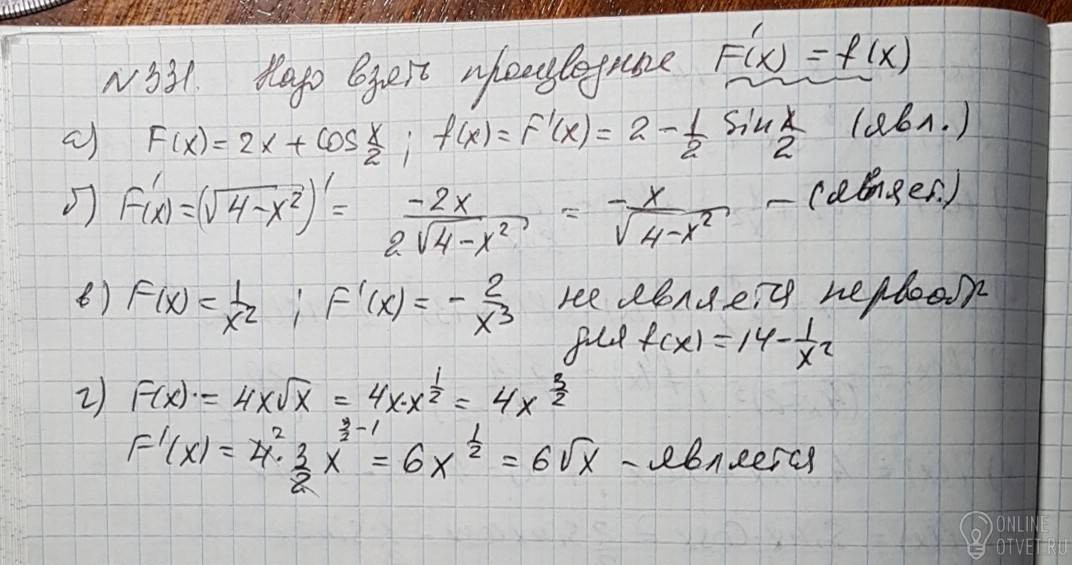 №331. Надо взять производные F'(x) = f(x)
а) F(x) = 2x + cos x/2 ; f(x) = F'(x) = 2 - 1/2 sin x/2 (явл.)
б) F'(x) = (√4-x²)' = -2x / 2√4-x² = -x / √4-x² - (являет.)
в) F(x) = 1/x² ; F'(x) = - 2/x³ не является первообр
для f(x) = 14 - 1/x²
г) F(x) = 4x√x = 4x·x^1/2 = 4x^3/2
F'(x) = 4² · 3/2 x^3/2-1 = 6x^1/2 = 6√x - является
ONLINE
OTVET.RU